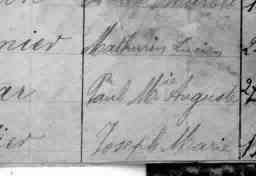 nier Mathurin Lucien 2
ar Paul Mie Auguste 27
ier Joseph Marie 1